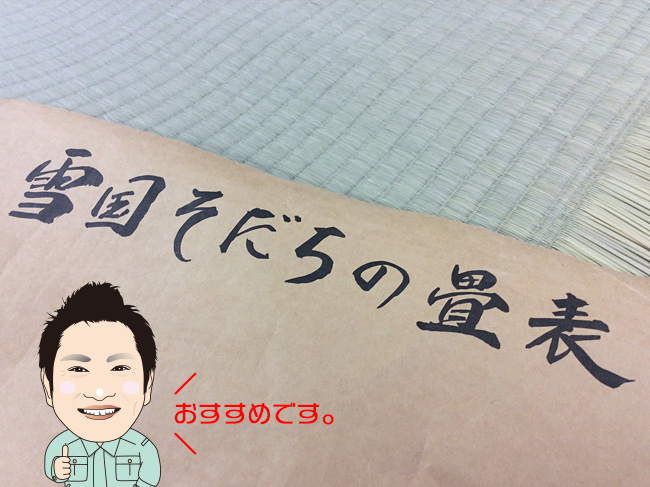 雪国そだちの畳表
おすすめです。